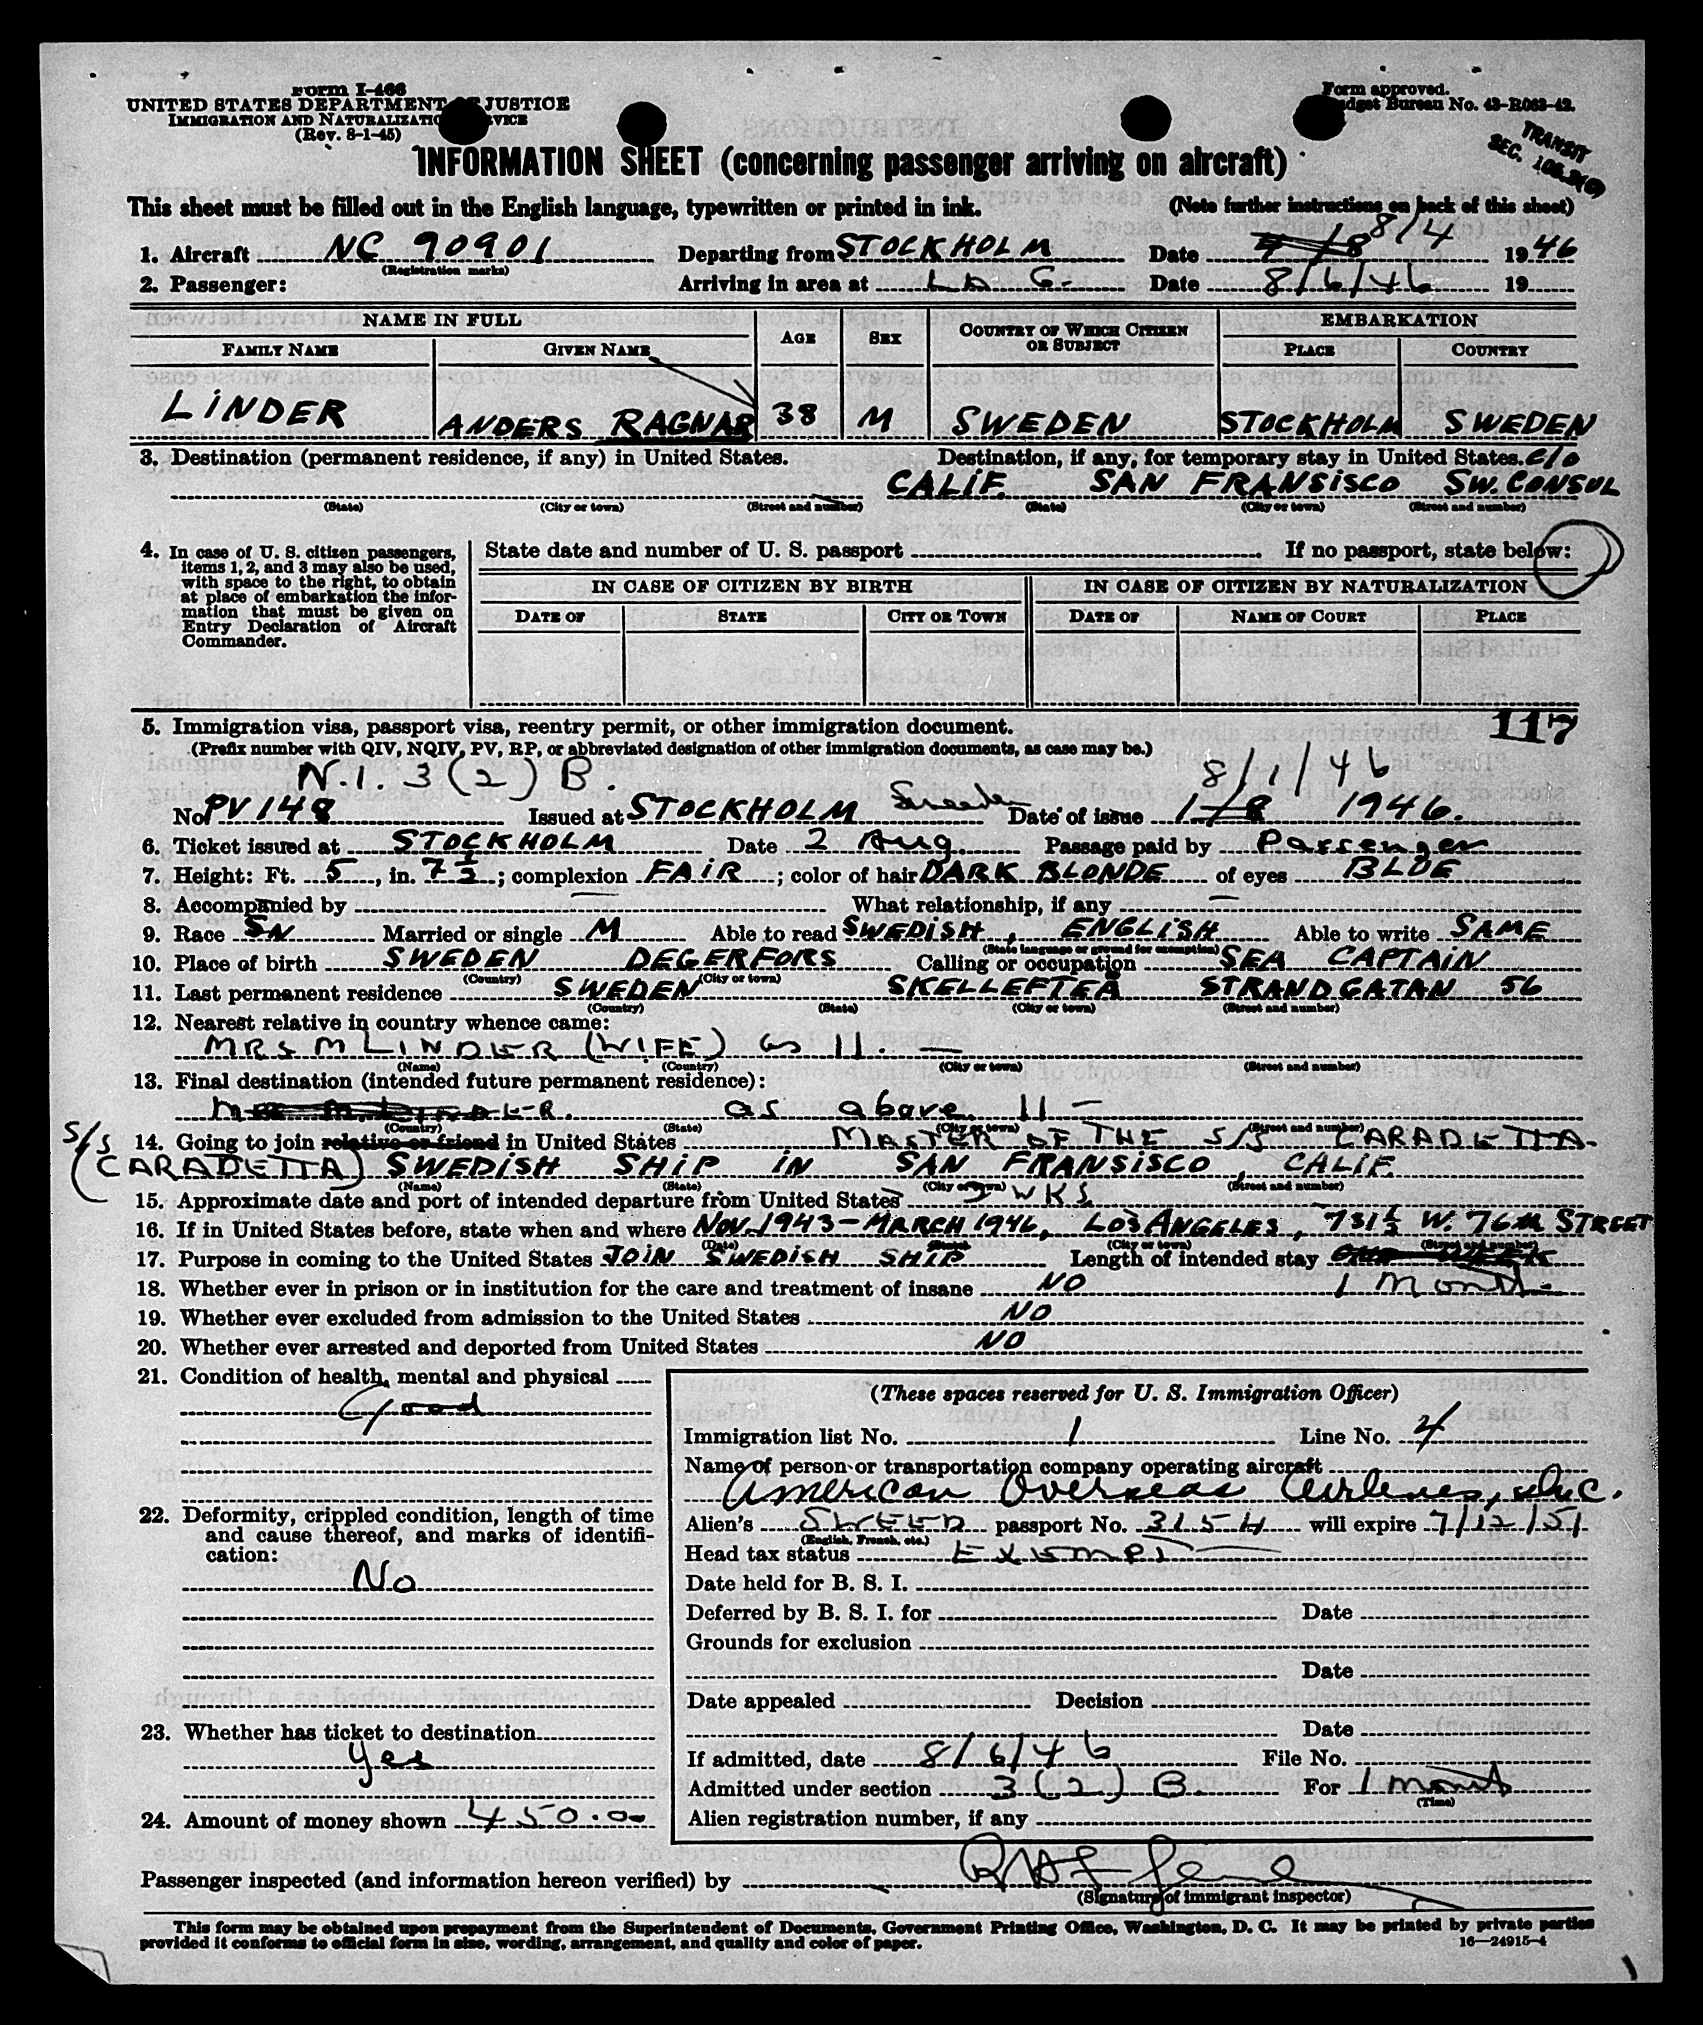 Form I-466
UNITED STATES DEPARTMENT OF JUSTICE
IMMIGRATION AND NATURALIZATION SERVICE
(Rev. 8-1-45)
Form approved.
Budget Bureau No. 43-R063-42.
TRANSIT
SEC. 106.3(C)
INFORMATION SHEET (concerning passenger arriving on aircraft)
This sheet must be filled out in the English language, typewritten or printed in ink. (Note further instructions on back of this sheet)
1. Aircraft NC 90901 Departing from STOCKHOLM Date 8/4 1946
(Registration marks)
2. Passenger: Arriving in area at L.A. G. Date 8/6/46 19
NAME IN FULL AGE SEX COUNTRY OF WHICH CITIZEN OR SUBJECT EMBARKATION
FAMILY NAME GIVEN NAME PLACE COUNTRY
LINDER ANDERS RAGNAR 38 M SWEDEN STOCKHOLM SWEDEN
3. Destination (permanent residence, if any) in United States. Destination, if any, for temporary stay in United States. c/o
CALIF. SAN FRANSISCO SW. CONSUL
(State) (City or town) (Street and number) (State) (City or town) (Street and number)
4. In case of U. S. citizen passengers, items 1, 2, and 3 may also be used, with space to the right, to obtain at place of embarkation the information that must be given on Entry Declaration of Aircraft Commander.
State date and number of U. S. passport If no passport, state below:
IN CASE OF CITIZEN BY BIRTH IN CASE OF CITIZEN BY NATURALIZATION
DATE OF STATE CITY OR TOWN DATE OF NAME OF COURT PLACE
117
5. Immigration visa, passport visa, reentry permit, or other immigration document.
(Prefix number with QIV, NQIV, PV, RP, or abbreviated designation of other immigration documents, as case may be.)
N.I. 3(2) B. 8/1/46
No. PV 148 Issued at STOCKHOLM Sweden Date of issue 1/8 1946.
6. Ticket issued at STOCKHOLM Date 2 Aug. Passage paid by Passenger
7. Height: Ft. 5, in. 7 1/2; complexion FAIR; color of hair DARK BLONDE of eyes BLUE
8. Accompanied by — What relationship, if any —
9. Race SN Married or single M Able to read SWEDISH, ENGLISH Able to write SAME
(State language or ground for exemption)
10. Place of birth SWEDEN DEGERFORS Calling or occupation SEA CAPTAIN
(Country) (City or town)
11. Last permanent residence SWEDEN SKELLEFTEÅ STRANDGATAN 56
(Country) (State) (City or town) (Street and number)
12. Nearest relative in country whence came:
MRS M LINDER (WIFE) as 11. —
(Name) (Country) (City or town) (Street and number)
13. Final destination (intended future permanent residence):
as above 11 —
(Country) (State) (City or town) (Street and number)
14. Going to join relative or friend in United States MASTER OF THE S/S CARADETTA.
S/S (CARADETTA) SWEDISH SHIP IN SAN FRANSISCO, CALIF.
(Name) (State) (City or town) (Street and number)
15. Approximate date and port of intended departure from United States 2 WKS.
16. If in United States before, state when and where NOV. 1943 – MARCH 1946, LOS ANGELES, 731 1/2 W. 76th STREET
(Date) (State) (City or town) (Street and number)
17. Purpose in coming to the United States JOIN SWEDISH SHIP Length of intended stay ONE WEEK
1 month –
18. Whether ever in prison or in institution for the care and treatment of insane NO
19. Whether ever excluded from admission to the United States NO
20. Whether ever arrested and deported from United States NO
21. Condition of health, mental and physical
Good
22. Deformity, crippled condition, length of time and cause thereof, and marks of identification:
No
23. Whether has ticket to destination
Yes
24. Amount of money shown 450.00
(These spaces reserved for U. S. Immigration Officer)
Immigration list No. 1 Line No. 4
Name of person or transportation company operating aircraft
American Overseas Airlines, Inc.
Alien's SWEED passport No. 3154 will expire 7/12/51
(English, French, etc.)
Head tax status Exempt —
Date held for B. S. I.
Deferred by B. S. I. for Date
Grounds for exclusion
Date
Date appealed Decision
Date
If admitted, date 8/6/46 File No.
Admitted under section 3(2) B. For 1 month
(Time)
Alien registration number, if any
Passenger inspected (and information hereon verified) by
(Signature of immigrant inspector)
This form may be obtained upon prepayment from the Superintendent of Documents, Government Printing Office, Washington, D. C. It may be printed by private parties
provided it conforms to official form in size, wording, arrangement, and quality and color of paper.
16—24915-4